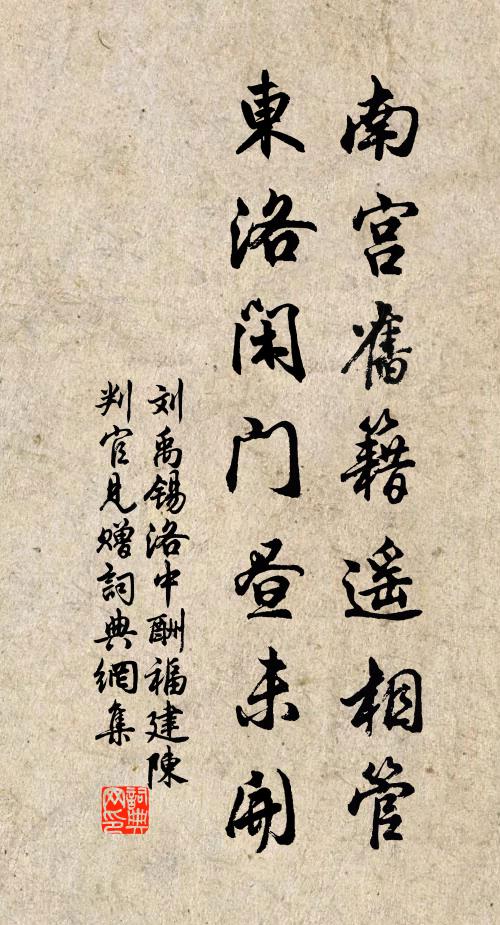 南宫舊籍遥相管
東洛閑門昼未開
刘禹锡洛中酬福建陳
判官見赠詞典網集
詞典網印